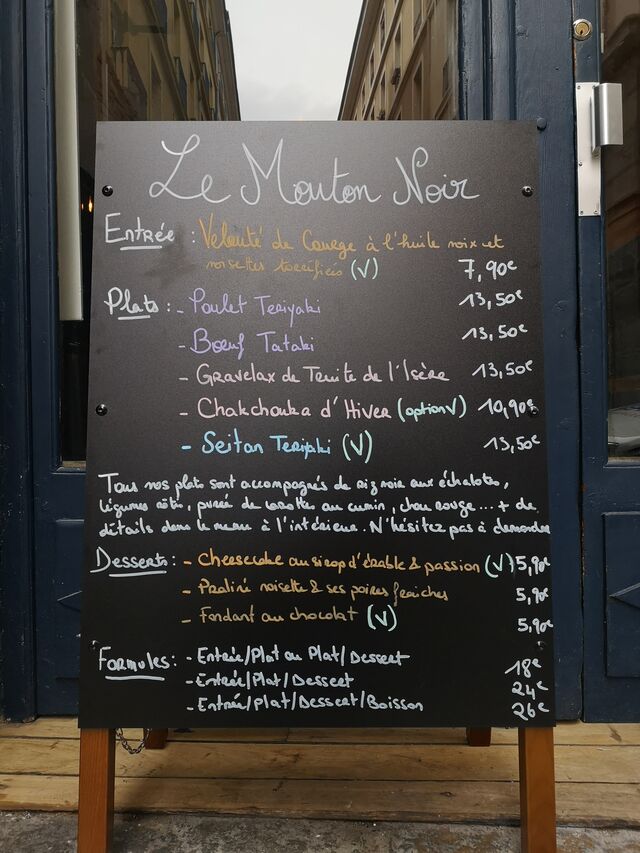 Le Mouton Noir
Entrée : Velouté de Courge à l'huile noix et
noisettes torréfiées (V) 7,90€
Plats : - Poulet Teriyaki 13,50€
- Bœuf Tataki 13,50€
- Gravelax de Truite de l'Isère 13,50€
- Chakchouka d'Hiver (option V) 10,90€
- Seitan Teriyaki (V) 13,50€
Tous nos plats sont accompagnés de riz noir aux échalotes,
légumes rôtis, purée de carotte au cumin, chou rouge... + de
détails dans le menu à l'intérieur. N'hésitez pas à demander
Desserts : - Cheesecake au sirop d'érable & passion (V) 5,90€
- Praliné noisette & ses poires fraîches 5,90€
- Fondant au chocolat (V) 5,90€
Formules : - Entrée/Plat ou Plat/Dessert 18€
- Entrée/Plat/Dessert 24€
- Entrée/Plat/Dessert/Boisson 26€